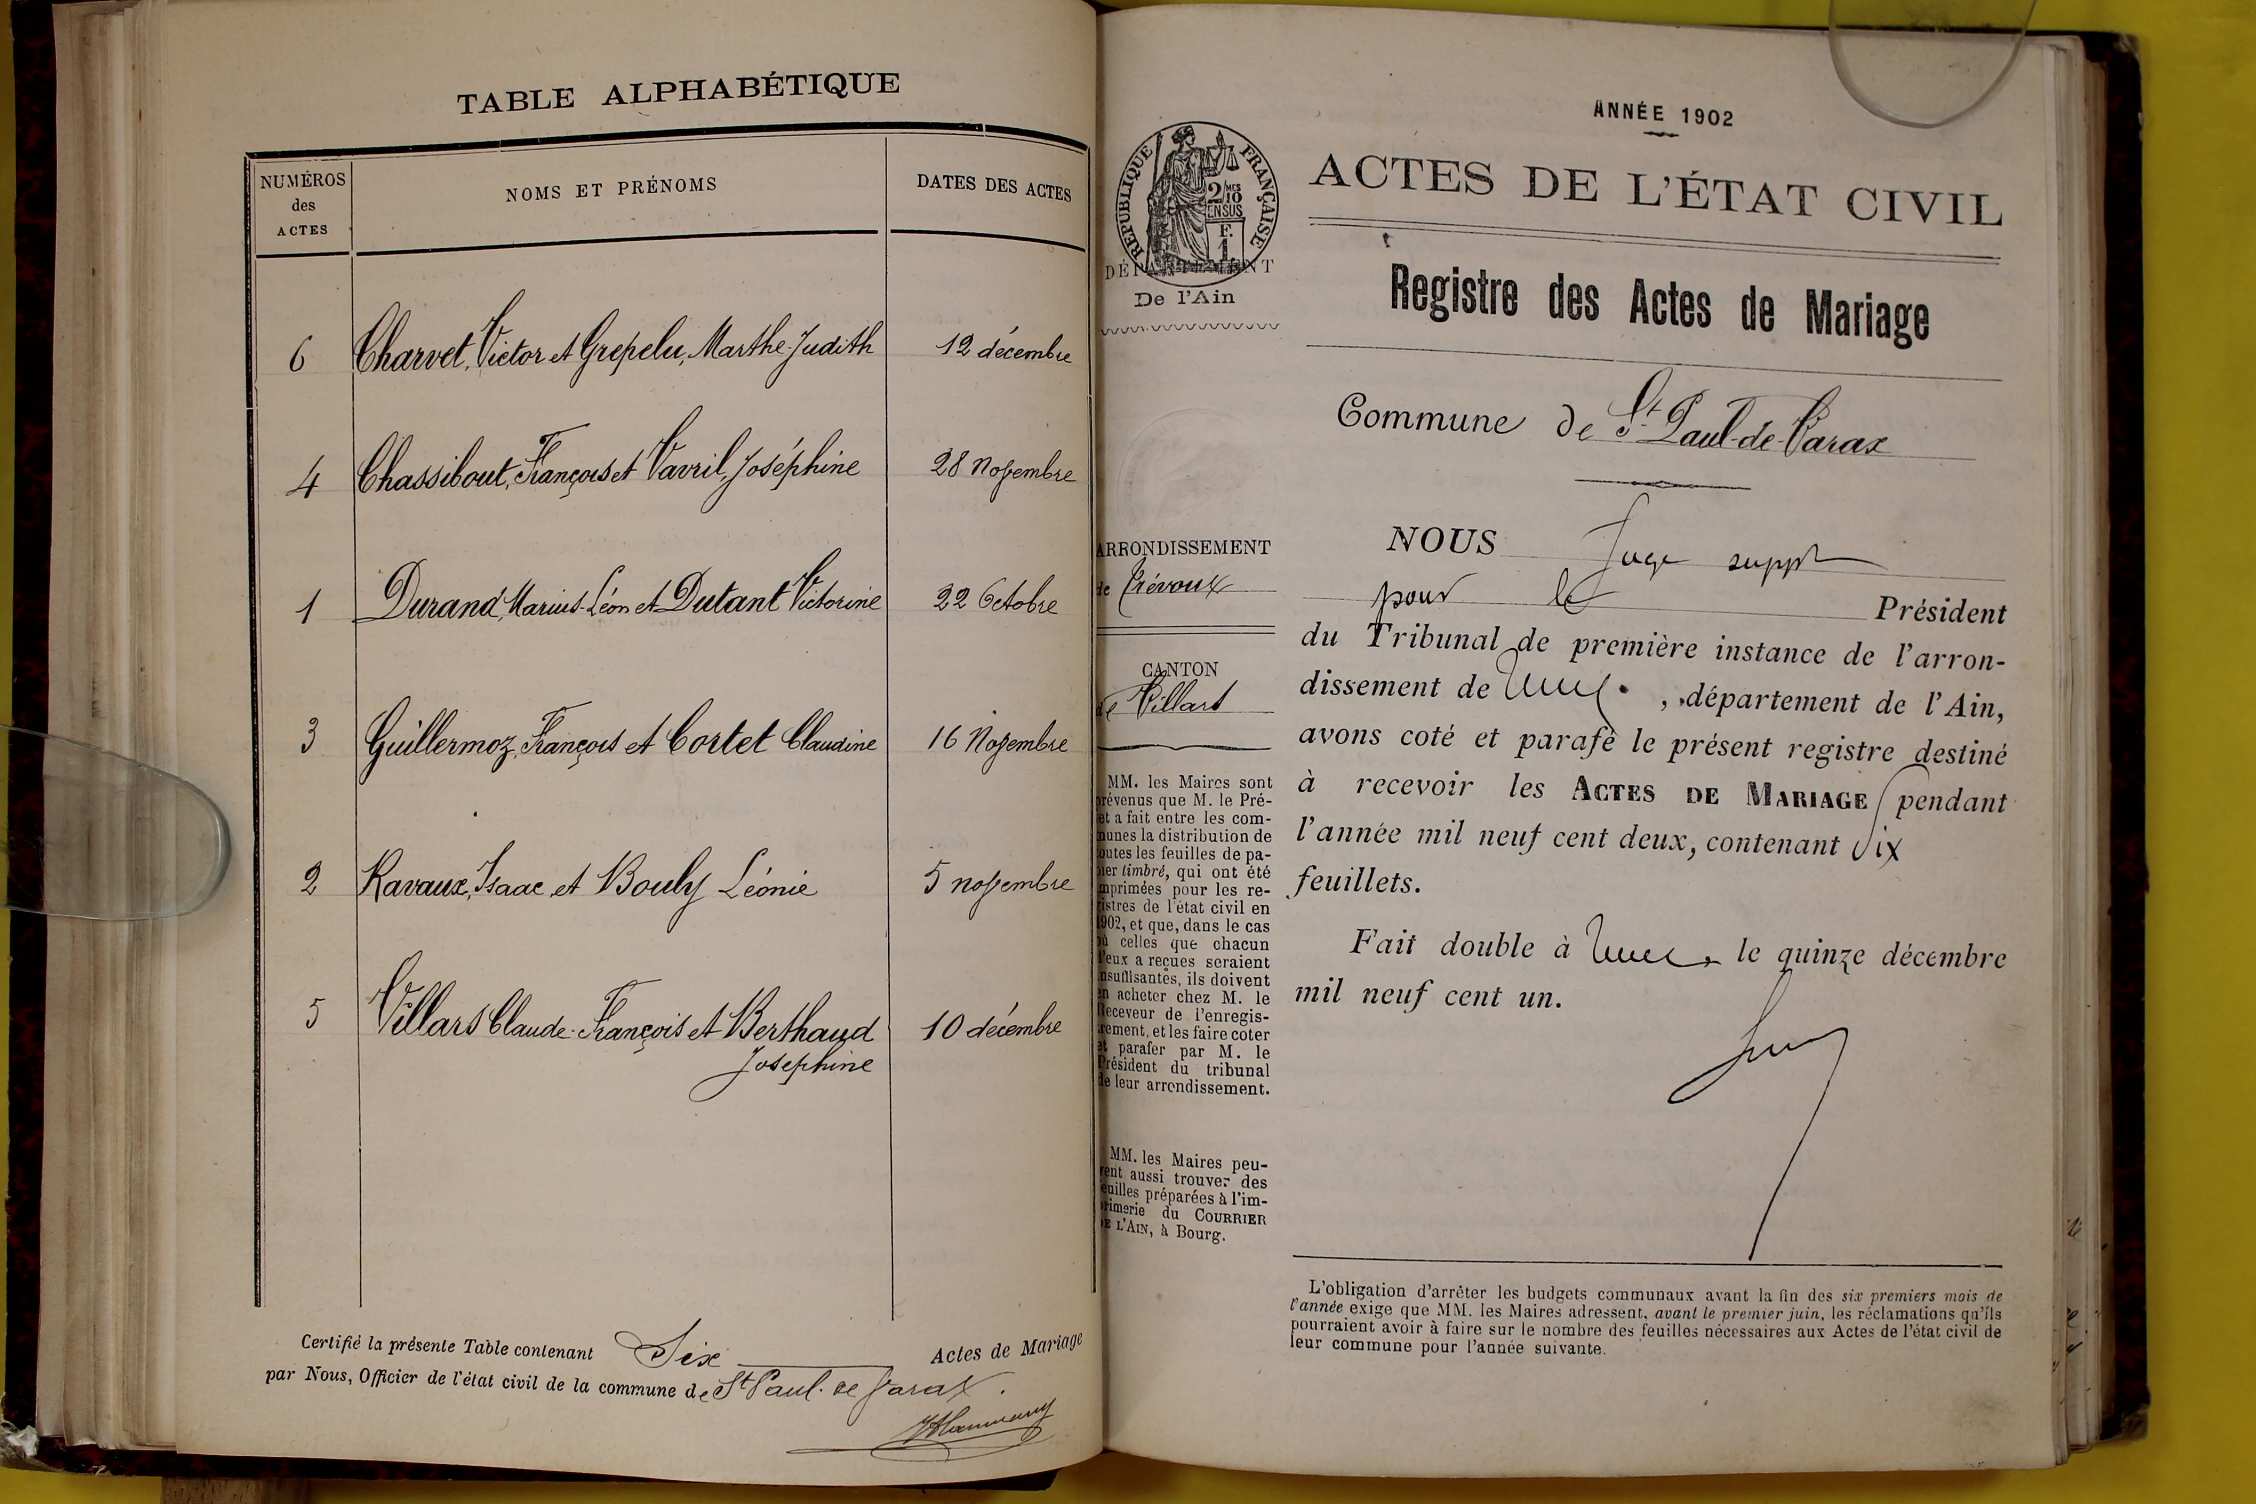 TABLE ALPHABÉTIQUE
NUMÉROS des ACTES
NOMS ET PRÉNOMS
DATES DES ACTES
6 Charvet, Victor et Grepelu, Marthe-Judith 12 décembre
4 Chassibout, François et Vavril, Joséphine 28 Novembre
1 Durand, Marius-Léon et Dutant Victorine 22 Octobre
3 Guillermoz, François et Cortet Claudine 16 Novembre
2 Ravaux, Isaac et Bouly Léonie 5 novembre
5 Villars Claude-François et Berthaud 10 décembre
Josephine
Certifié la présente Table contenant Six Actes de Mariage
par Nous, Officier de l'état civil de la commune de St Paul de Varax.
ANNÉE 1902
RÉPUBLIQUE FRANÇAISE
2/10 MES
EN SUS
F.
1
DÉPARTEMENT
De l'Ain
ACTES DE L'ÉTAT CIVIL
Registre des Actes de Mariage
Commune de St Paul-de-Varax
ARRONDISSEMENT
de Trévoux
CANTON
de Villars
MM. les Maires sont
prévenus que M. le Pré-
et a fait entre les com-
munes la distribution de
toutes les feuilles de pa-
pier timbré, qui ont été
imprimées pour les re-
gistres de l'état civil en
1902, et que, dans le cas
où celles que chacun
d'eux a reçues seraient
insuffisantes, ils doivent
en acheter chez M. le
Receveur de l'enregis-
trement, et les faire coter
et parafer par M. le
Président du tribunal
de leur arrondissement.
MM. les Maires peu-
vent aussi trouver des
feuilles préparées à l'im-
primerie du COURRIER
DE L'AIN, à Bourg.
NOUS Juge suppt
pour le Président
du Tribunal de première instance de l'arron-
dissement de , département de l'Ain,
avons coté et parafé le présent registre destiné
à recevoir les ACTES DE MARIAGE pendant
l'année mil neuf cent deux, contenant Six
feuillets.
Fait double à , le quinze décembre
mil neuf cent un.
L'obligation d'arrêter les budgets communaux avant la fin des six premiers mois de
l'année exige que MM. les Maires adressent, avant le premier juin, les réclamations qu'ils
pourraient avoir à faire sur le nombre des feuilles nécessaires aux Actes de l'état civil de
leur commune pour l'année suivante.